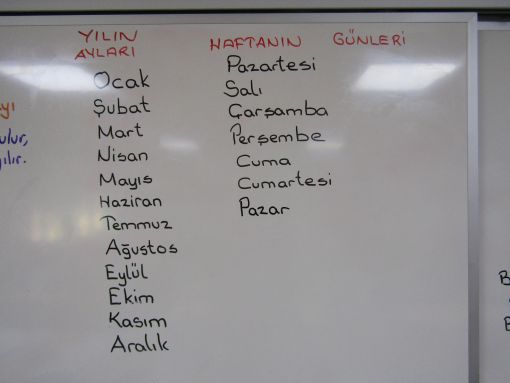 YILIN
AYLARI
Ocak
Şubat
Mart
Nisan
Mayıs
Haziran
Temmuz
Ağustos
Eylül
Ekim
Kasım
Aralık
HAFTANIN GÜNLERİ
Pazartesi
Salı
Çarşamba
Perşembe
Cuma
Cumartesi
Pazar